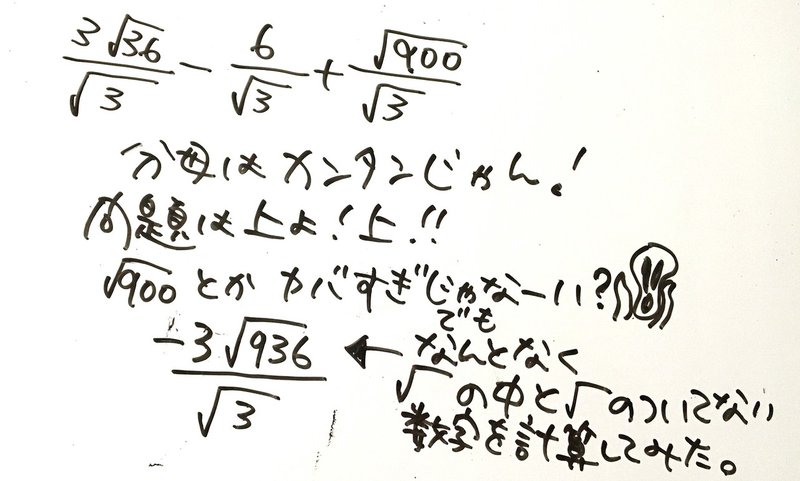 3√36/√3 - 6/√3 + √900/√3
分母はカンタンじゃん!
問題は上よ!上!!
√900とかヤバすぎじゃなーい?
-3√936/√3 ← でもなんとなく
√の中と√のついてない
数字を計算してみた。